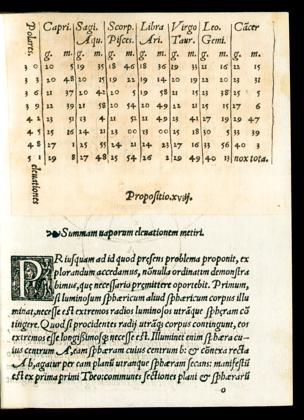 Polares. Capri. Sagi. Scorp. Libra Virgo Leo. Cãcer
Aqu. Pisces. Ari. Taur. Gemi.
g. m. g. m. g. m. g. m. g. m. g. m. g. m.
3 0 10 5 19 35 18 46 18 36 19 33 21 16 11 15
3 3 10 48 20 25 19 22 19 14 20 19 22 10 12 31
3 6 11 37 20 42 20 5 20 10
3 9 12 39 21 20 54
4 2 23 51
4 5 15 16 24 21
4 8 17 1 25 55
5 1 19 8 27 48 25 54 26 2 29 49 40 13 nox tota.
eleuationes
Propositio.xviij.
Summam uaporum eleuationem metiri.
PRiusquam ad id quod presens problema proponit, ex
plorandum accedamus, nõnulla ordinatim demonstra
bimus, quę necessario pręmittere oportebit. Primum,
si luminosum sphæricum aliud sphæricum corpus illu
minat, necesse est extremos radios luminosos utrãque sphęram cõ
tingere. Quod si procidentes radij utrãq; corpus contingunt, eos
extremos esse longissimosq; necesse est. Illuminet enim sphæra cu-
ius centrum A, eam sphæram cuius centrum b: & cõnexa recta
A b, agatur per eam planũ utranque sphæram secans: manifestũ
est ex prima primi Theo: communes sectiones plani & sphærarũ
o